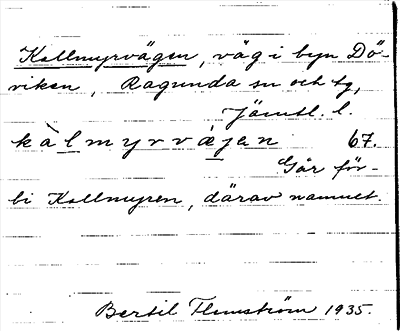 Kallmyrvägen, väg i byn Dö-
viken, Ragunda sn och tg,
Jämtl. l.
kàlmyrvä̀jan 67.
Går för-
bi Kallmyren, därav namnet.
Bertil Flemström 1935.